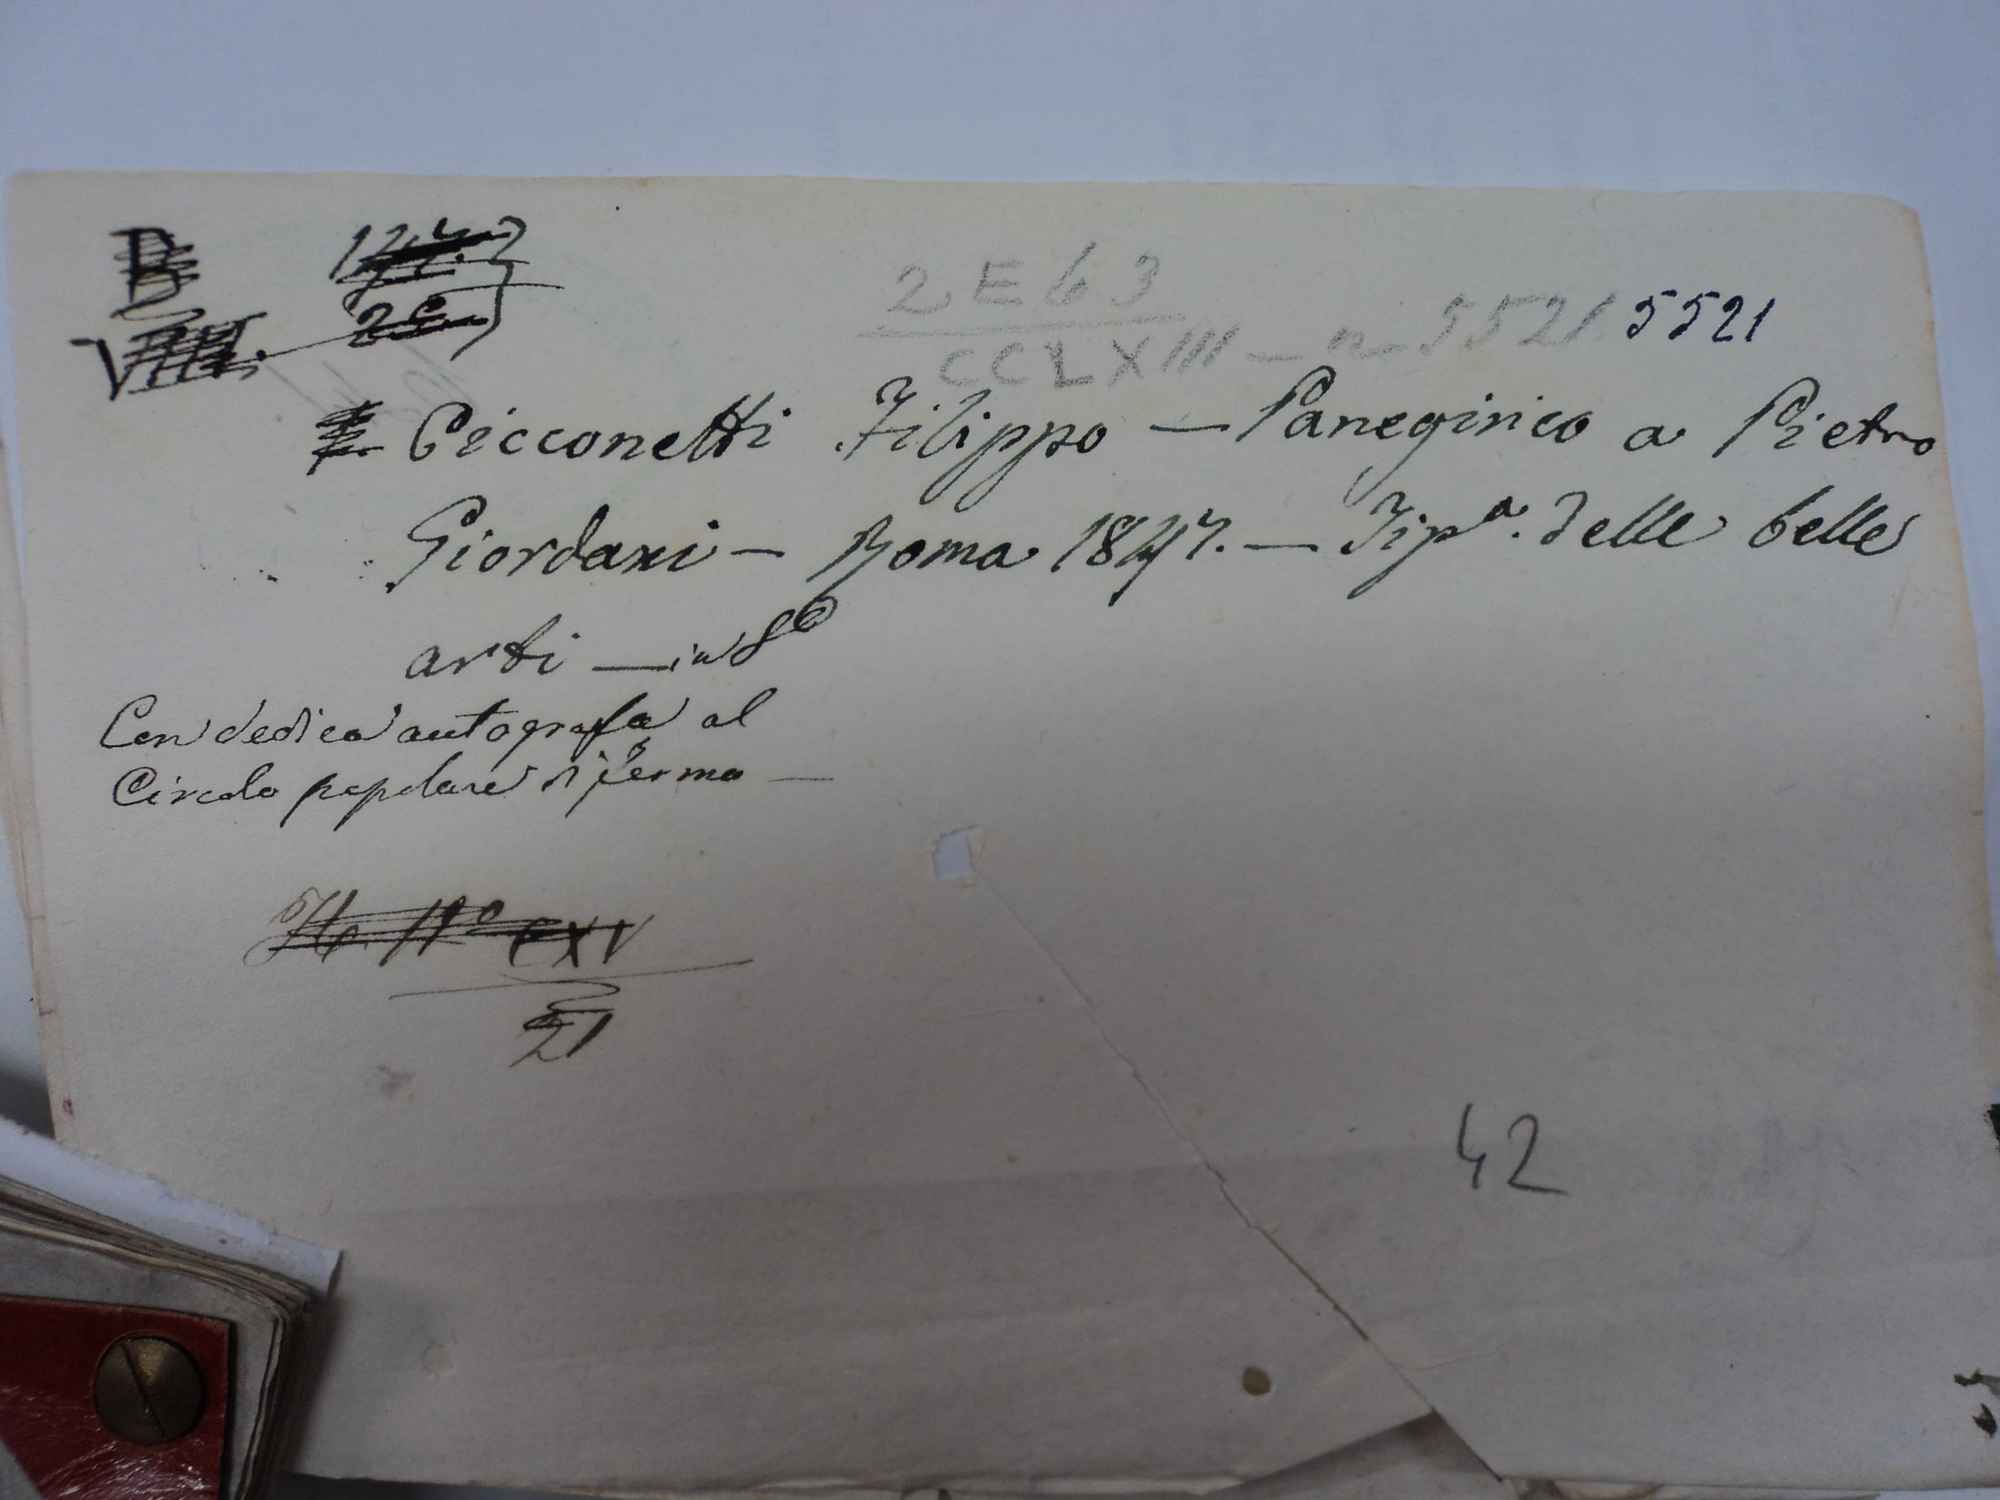 B
VIII.
2 E 63
CCLXIII – n 5521 5521
Cicconetti Filippo – Panegirico a Pietro
Giordani – Roma 1847. – Tipª. delle belle
arti – in 8º
Con dedica autografa al
Circolo popolare di Fermo –
CXV
21
42